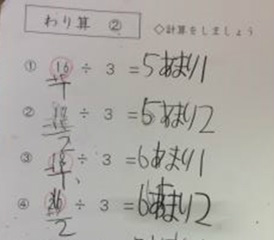 わり算 ②
◇計算をしましょう
① 16 ÷ 3 = 5あまり1
② ÷ 3 = 5あまり2
③ ÷ 3 = 6あまり1
④ ÷ 3 = 6あまり2